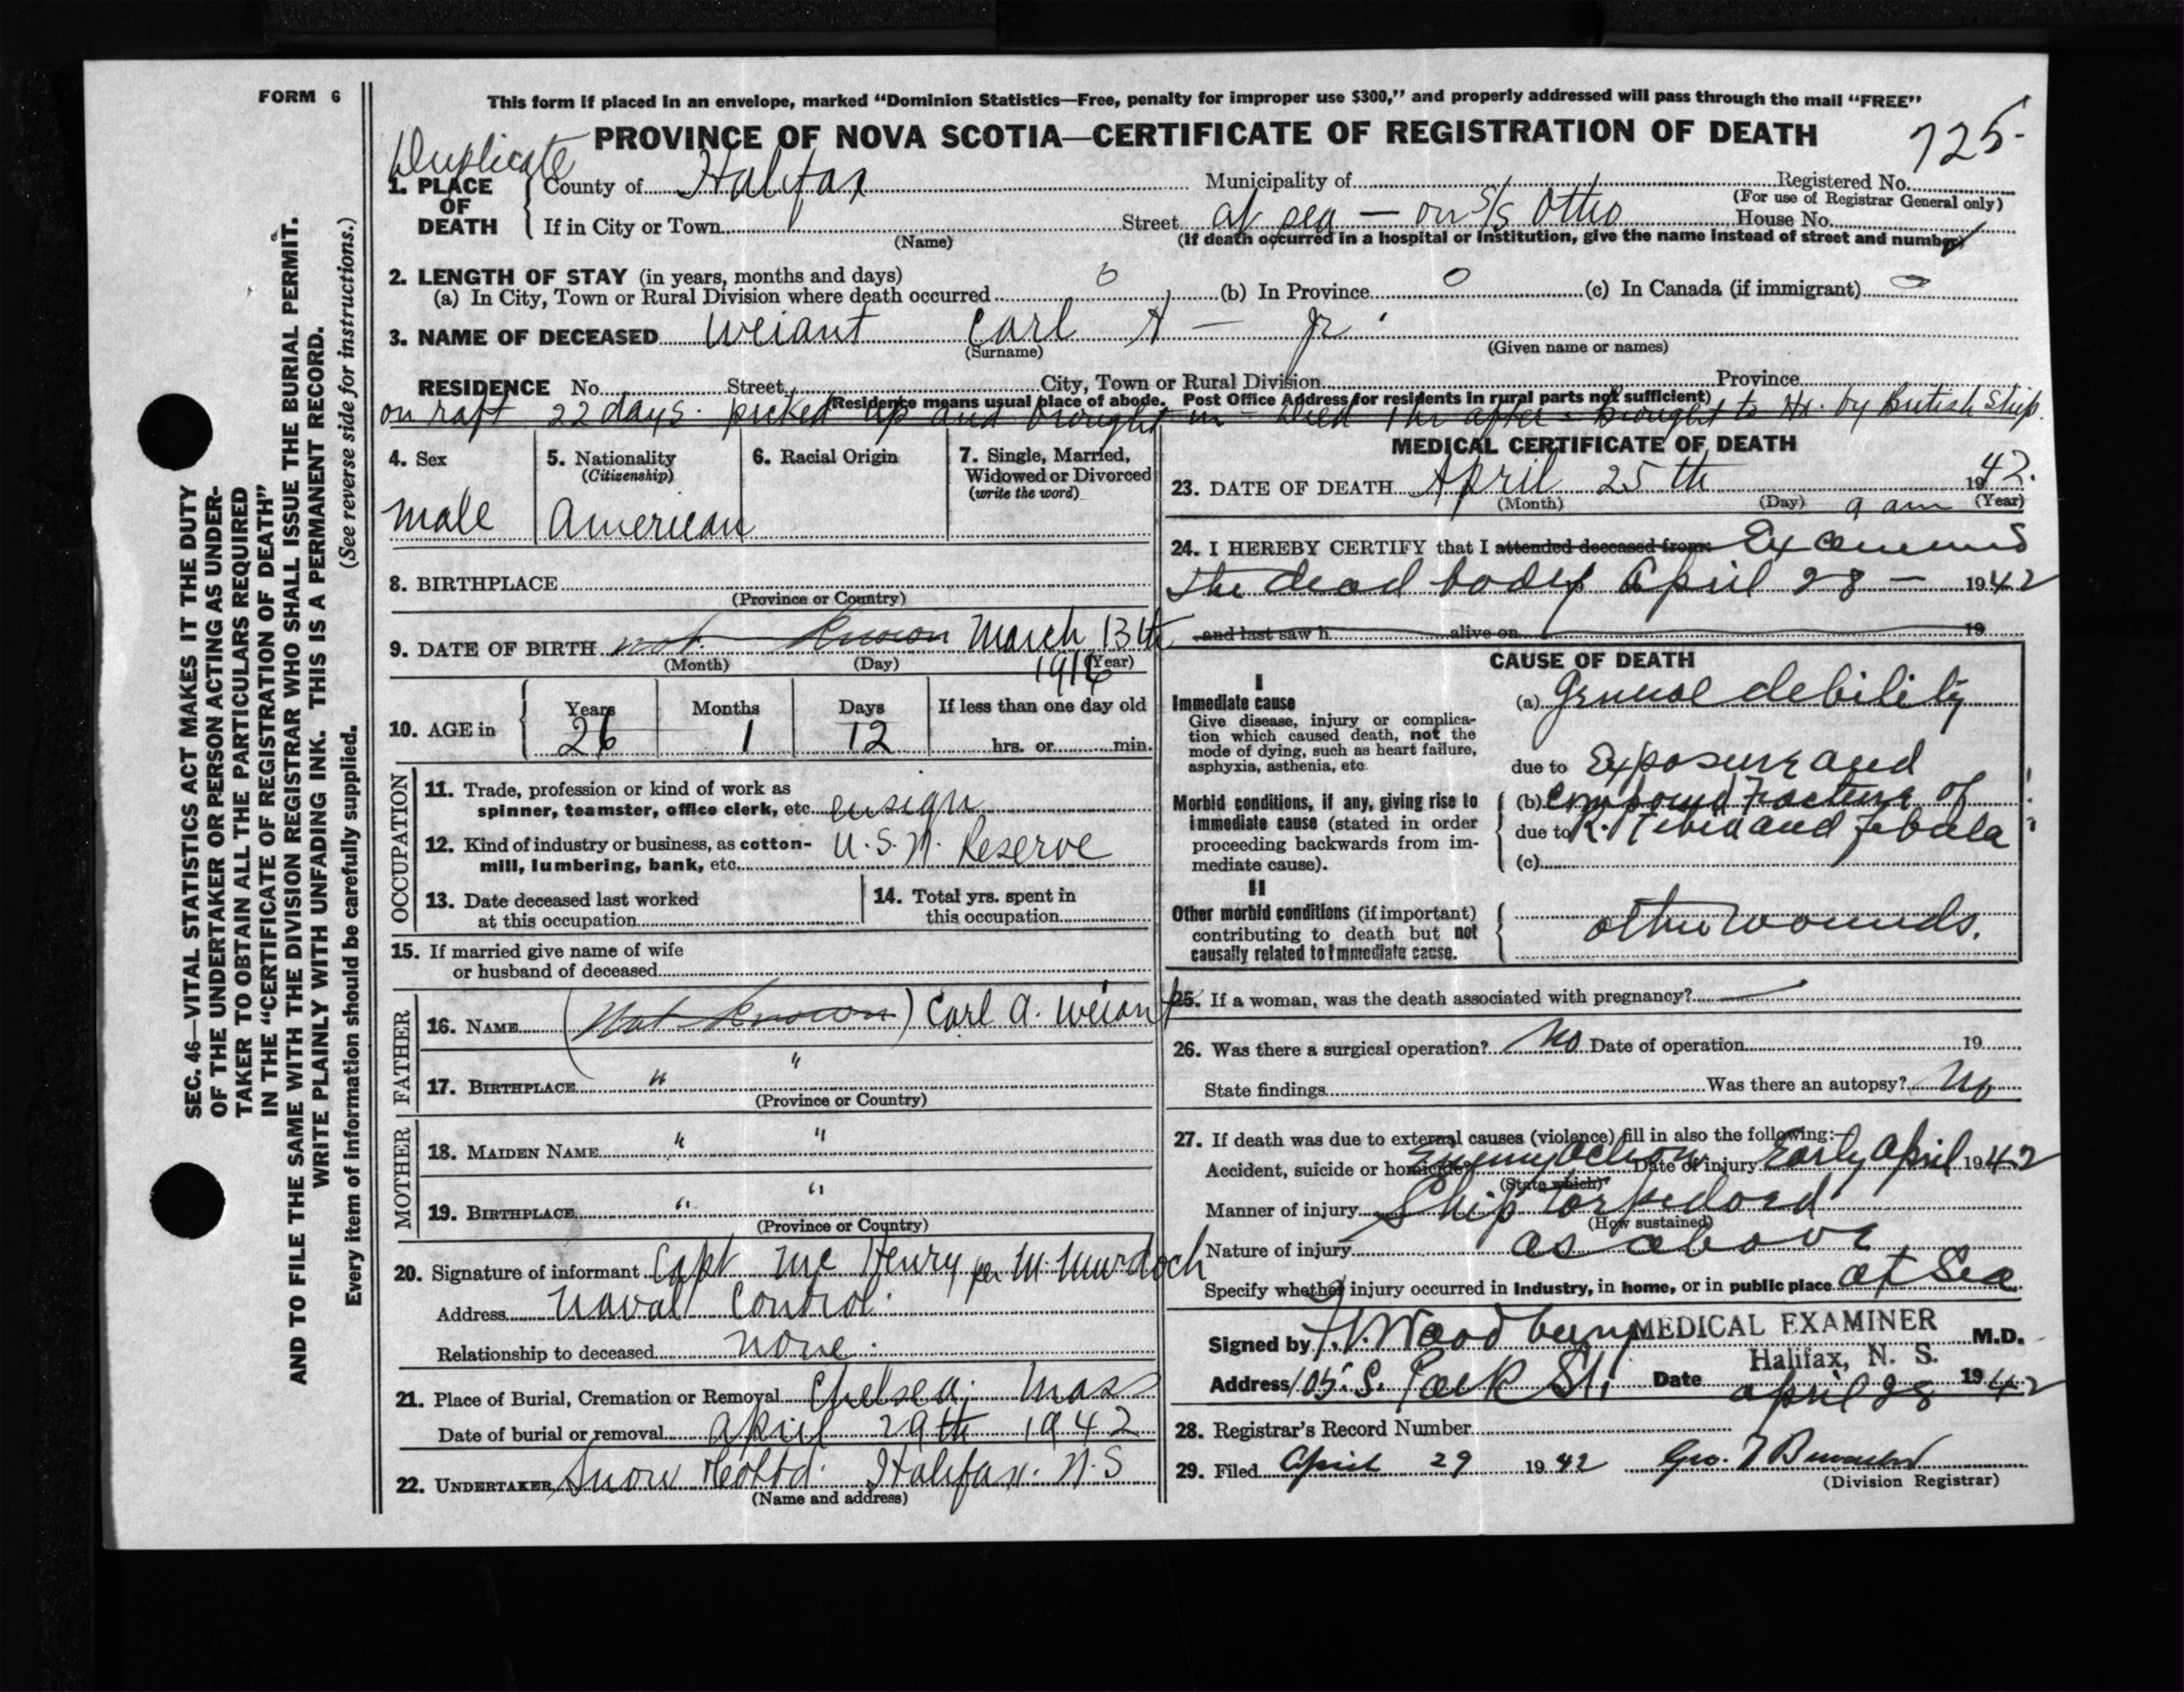 FORM 6
This form if placed in an envelope, marked “Dominion Statistics—Free, penalty for improper use $300,” and properly addressed will pass through the mail “FREE”
Duplicate
PROVINCE OF NOVA SCOTIA—CERTIFICATE OF REGISTRATION OF DEATH
725-
1. PLACE OF DEATH
County of Halifax Municipality of Registered No.
(For use of Registrar General only)
If in City or Town Street at sea — on S/S Otho House No.
(Name) (If death occurred in a hospital or institution, give the name instead of street and number)
2. LENGTH OF STAY (in years, months and days)
(a) In City, Town or Rural Division where death occurred 0 (b) In Province 0 (c) In Canada (if immigrant) 0
3. NAME OF DECEASED Weiant Carl A — Jr.
(Surname) (Given name or names)
RESIDENCE No. Street City, Town or Rural Division Province
(Residence means usual place of abode. Post Office Address for residents in rural parts not sufficient)
on raft 22 days. picked up and brought in — Died 1 hr after — Brought to Hx. by British Ship.
4. Sex
male
5. Nationality
(Citizenship)
American
6. Racial Origin
7. Single, Married,
Widowed or Divorced
(write the word)
8. BIRTHPLACE
(Province or Country)
9. DATE OF BIRTH not known March 13th
(Month) (Day) (Year)
1916
10. AGE in
Years Months Days If less than one day old
26 1 12 hrs. or min.
OCCUPATION
11. Trade, profession or kind of work as
spinner, teamster, office clerk, etc. ensign
12. Kind of industry or business, as cotton-
mill, lumbering, bank, etc. U.S.N. Reserve
13. Date deceased last worked
at this occupation
14. Total yrs. spent in
this occupation
15. If married give name of wife
or husband of deceased
FATHER
16. NAME (Not known) Carl A. Weiant
17. BIRTHPLACE " "
(Province or Country)
MOTHER
18. MAIDEN NAME " "
19. BIRTHPLACE " "
(Province or Country)
20. Signature of informant Capt McHenry per M. Murdoch
Address Naval Control.
Relationship to deceased none.
21. Place of Burial, Cremation or Removal Chelsea. Mass
Date of burial or removal April 29th 1942
22. UNDERTAKER Snow Co Ltd. Halifax. N.S
(Name and address)
MEDICAL CERTIFICATE OF DEATH
23. DATE OF DEATH April 25th 1942.
(Month) (Day) 9 am (Year)
24. I HEREBY CERTIFY that I attended deceased from: Examined
the dead body April 28 — 1942
and last saw h alive on 19
CAUSE OF DEATH
I
Immediate cause
Give disease, injury or complica-
tion which caused death, not the
mode of dying, such as heart failure,
asphyxia, asthenia, etc.
(a) General debility
due to Exposure and
Morbid conditions, if any, giving rise to
immediate cause (stated in order
proceeding backwards from im-
mediate cause).
(b) Compound Fracture of
due to R. Tibia and Febula
(c)
II
Other morbid conditions (if important)
contributing to death but not
causally related to immediate cause.
other wounds.
25. If a woman, was the death associated with pregnancy?
26. Was there a surgical operation? No Date of operation 19
State findings Was there an autopsy? No
27. If death was due to external causes (violence) fill in also the following:—
Accident, suicide or homicide? Enemy Action Date of injury Early April 1942
(State which)
Manner of injury Ship torpedoed
(How sustained)
Nature of injury as above
Specify whether injury occurred in industry, in home, or in public place at Sea
Signed by Woodbury MEDICAL EXAMINER M.D.
Halifax, N. S.
Address 105 S. Park St. Date April 28 1942
28. Registrar's Record Number
29. Filed April 29 1942 Geo.
(Division Registrar)
SEC. 46—VITAL STATISTICS ACT MAKES IT THE DUTY
OF THE UNDERTAKER OR PERSON ACTING AS UNDER-
TAKER TO OBTAIN ALL THE PARTICULARS REQUIRED
IN THE “CERTIFICATE OF REGISTRATION OF DEATH”
AND TO FILE THE SAME WITH THE DIVISION REGISTRAR WHO SHALL ISSUE THE BURIAL PERMIT.
WRITE PLAINLY WITH UNFADING INK. THIS IS A PERMANENT RECORD.
Every item of information should be carefully supplied. (See reverse side for instructions.)